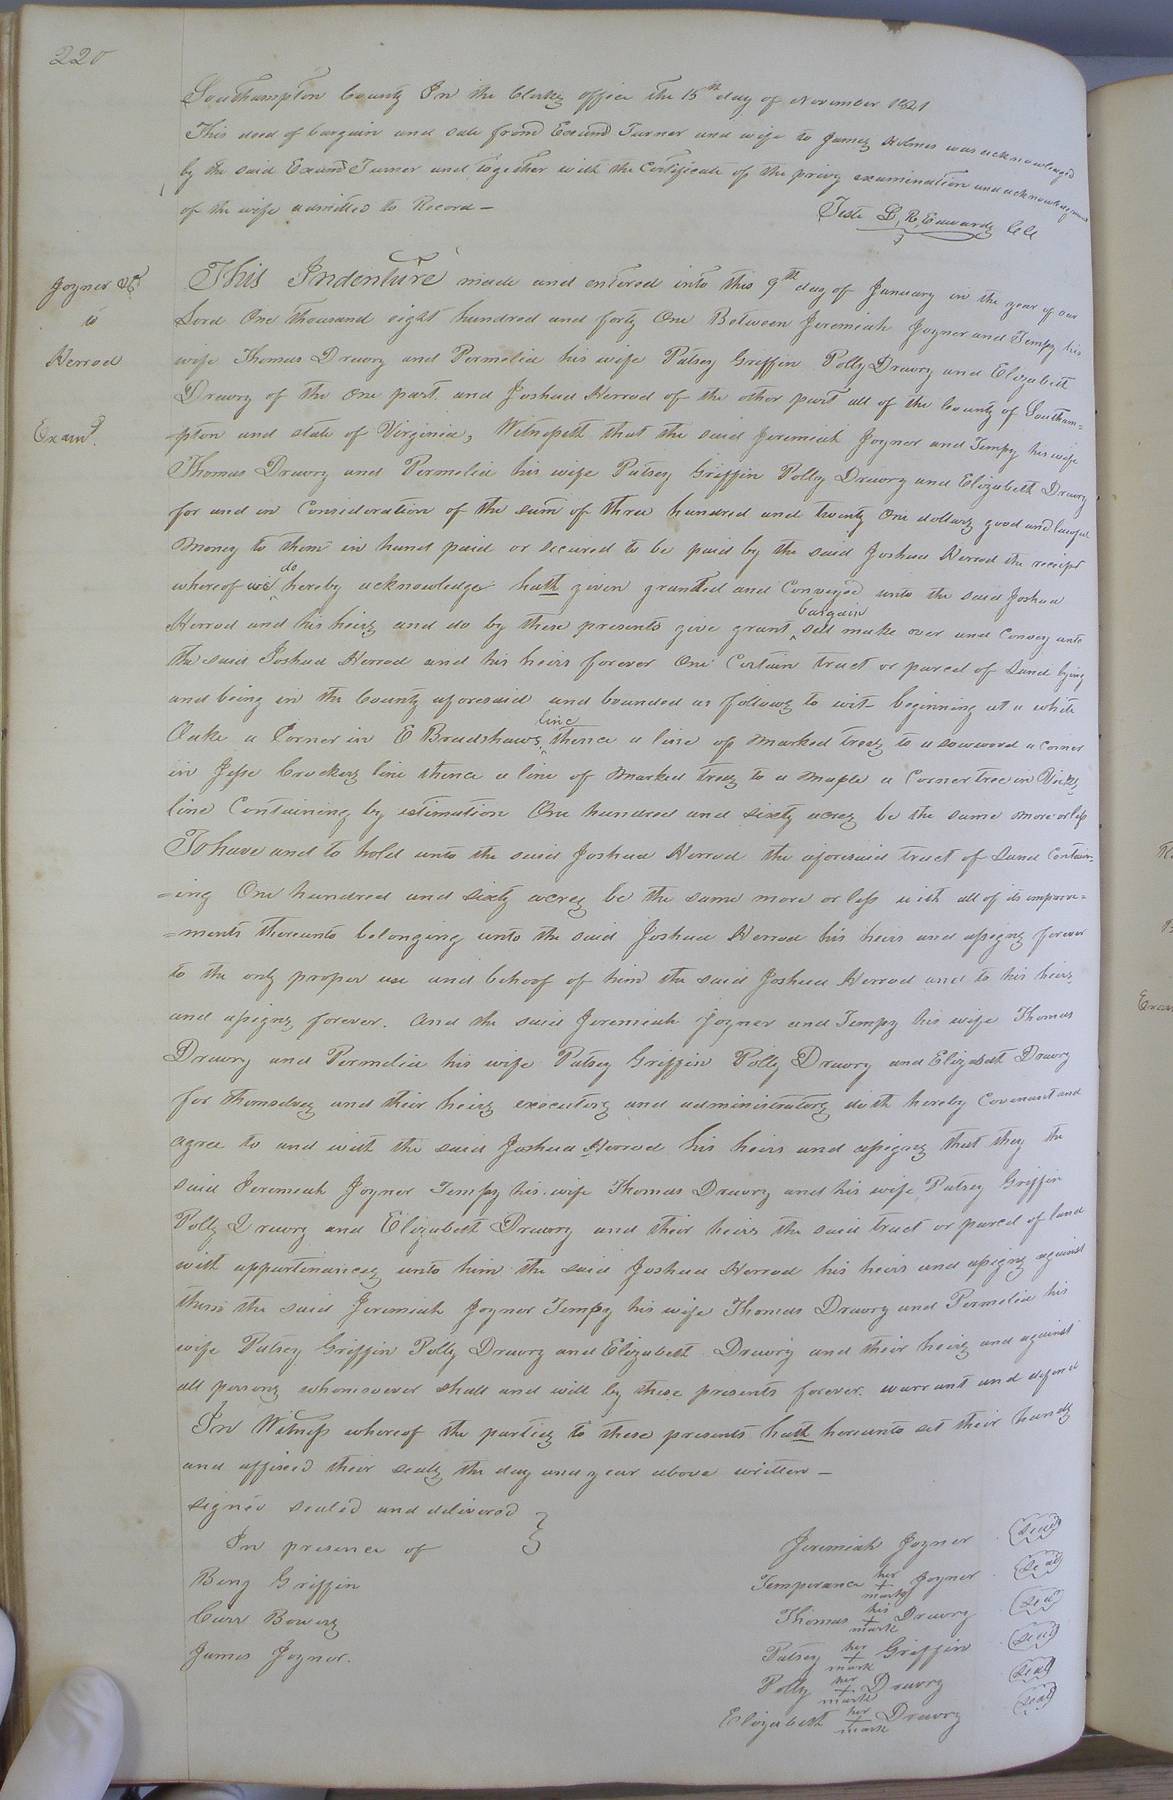 220
Southampton County In the Clerks office the 15th day of November 1841
This deed of bargain and sale from Exum Turner and wife to James Holmes was acknowledged
by the said Exum Turner and together with the Certificate of the privy examination and acknowledgment
of the wife admitted to Record —
Teste L, R, Edwards CC
Joyner &c
to
Herrod
Examd.
This Indenture made and entered into this 9th day of January in the year of our
Lord One thousand eight hundred and forty One Between Jeremiah Joyner and Tempy his
wife Thomas Drewry and Permelia his wife Patsey Griffin Polly Drewry and Elizabeth
Drewry of the one part and Joshua Herrod of the other part all of the County of Southam=
=pton and state of Virginia, Witnesseth that the said Jeremiah Joyner and Tempy his wife
Thomas Drewry and Permelia his wife Patsey Griffin Polly Drewry and Elizabeth Drewry
for and in Consideration of the sum of three hundred and twenty One dollars good and lawful
money to them in hand paid or secured to be paid by the said Joshua Herrod the receipt
whereof we do hereby acknowledge hath given granted and Conveyed unto the said Joshua
Herrod and his heirs and do by these presents give grant bargain sell make over and Convey unto
the said Joshua Herrod and his heirs forever One Certain tract or parcel of Land lying
and being in the County aforesaid and bounded as follows to wit beginning at a white
Oake a Corner in E Bradshaws line thence a line of marked trees to a sowwood a corner
in Jesse Crockers line thence a line of marked trees to a maple a Corner tree in Vicks
line Containing by estimation One hundred and sixty acres be the same more or less
To have and to hold unto the said Joshua Herrod the aforesaid tract of Land Contain=
=ing One hundred and sixty acres be the same more or less with all of its improve=
=ments thereunto belonging unto the said Joshua Herrod his heirs and assigns forever
to the only proper use and behoof of him the said Joshua Herrod and to his heirs,
and assigns forever. And the said Jeremiah Joyner and Tempy his wife Thomas
Drewry and Permelia his wife Patsey Griffin Polly Drewry and Elizabeth Drewry
for themselves and their heirs executors and administrators doth hereby Covenant and
agree to and with the said Joshua Herrod his heirs and assigns that they the
said Jeremiah Joyner Tempy his wife Thomas Drewry and his wife Patsey Griffin
Polly Drewry and Elizabeth Drewry and their heirs the said tract or parcel of land
with appurtenances unto him the said Joshua Herrod his heirs and assigns against
them the said Jeremiah Joyner Tempy his wife Thomas Drewry and Permelia his
wife Patsey Griffin Polly Drewry and Elizabeth Drewry and their heirs and against
all persons whomsoever shall and will by these presents forever warrant and defend
In Witness whereof the parties to these presents hath hereunto set their hands
and affixed their seals the day and year above written —
signed sealed and delivered }
In presence of
Benj Griffin
Carr Bowers
James Joyner.
Jeremiah Joyner seal
Temperance her + mark Joyner seal
Thomas his + mark Drewry seal
Patsey her + mark Griffin seal
Polly her + mark Drewry seal
Elizabeth her + mark Drewry seal